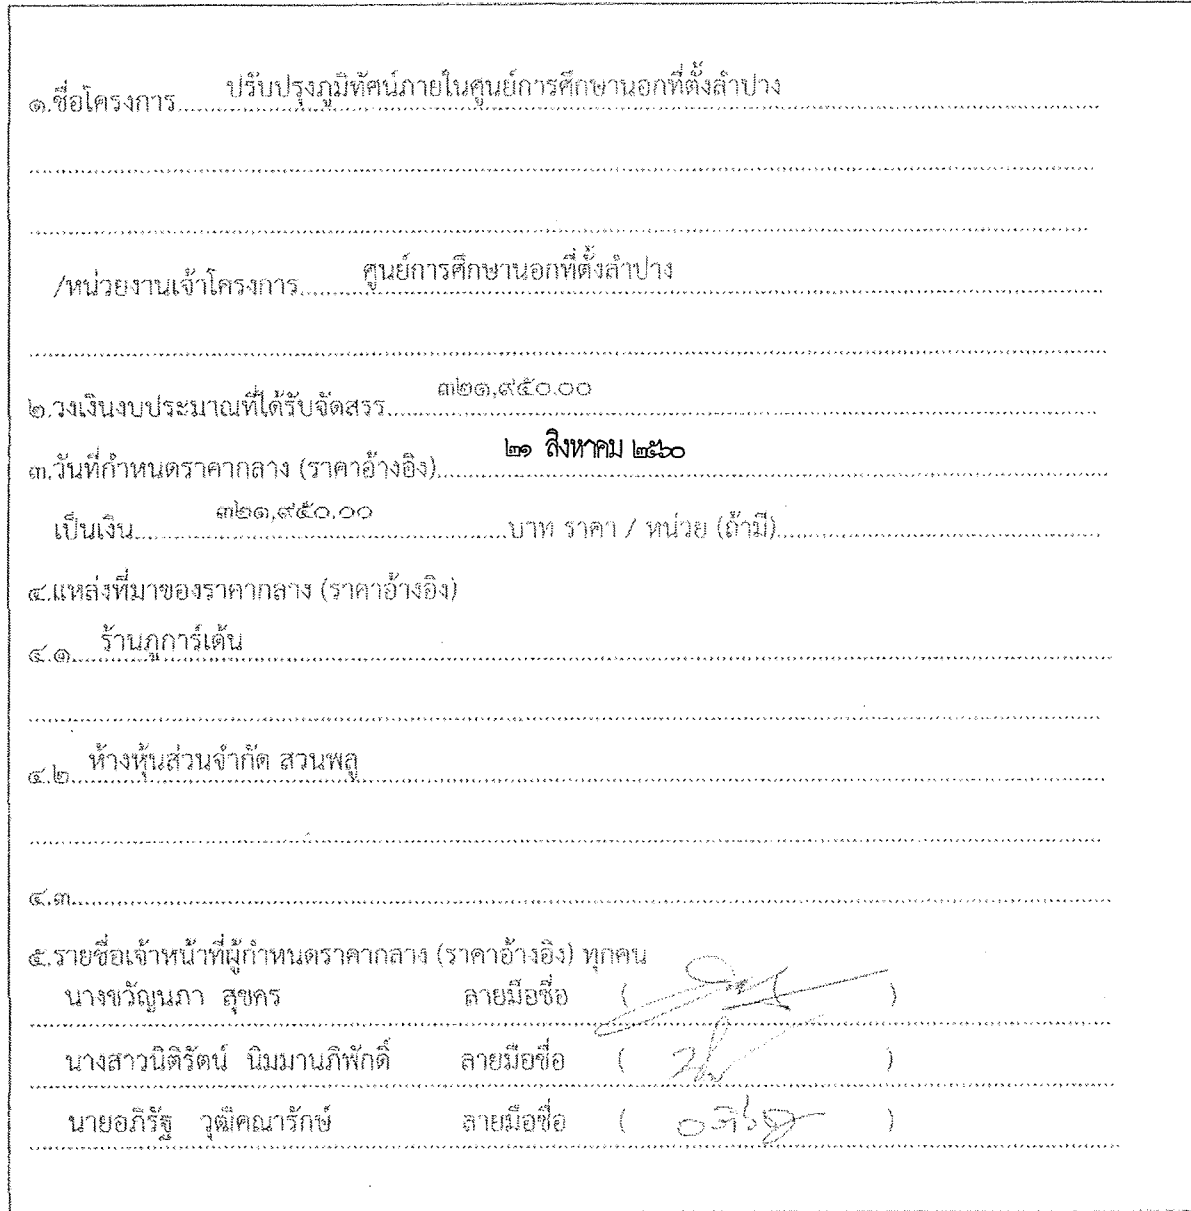 ๑.ชื่อโครงการ ปรับปรุงภูมิทัศน์ภายในศูนย์การศึกษานอกที่ตั้งลำปาง
/หน่วยงานเจ้าโครงการ ศูนย์การศึกษานอกที่ตั้งลำปาง
๒.วงเงินงบประมาณที่ได้รับจัดสรร ๓๒๑,๙๕๐.๐๐
๓.วันที่กำหนดราคากลาง (ราคาอ้างอิง) ๒๑ สิงหาคม ๒๕๖๐
เป็นเงิน ๓๒๑,๙๕๐.๐๐ บาท ราคา / หน่วย (ถ้ามี)
๔.แหล่งที่มาของราคากลาง (ราคาอ้างอิง)
๔.๑ ร้านภูการ์เด้น
๔.๒ ห้างหุ้นส่วนจำกัด สวนพลู
๔.๓
๕.รายชื่อเจ้าหน้าที่ผู้กำหนดราคากลาง (ราคาอ้างอิง) ทุกคน
นางขวัญนภา สุขคร ลายมือชื่อ ( )
นางสาวนิติรัตน์ นิมมานภิพักดิ์ ลายมือชื่อ ( )
นายอภิรัฐ วุฒิคณารักษ์ ลายมือชื่อ ( )